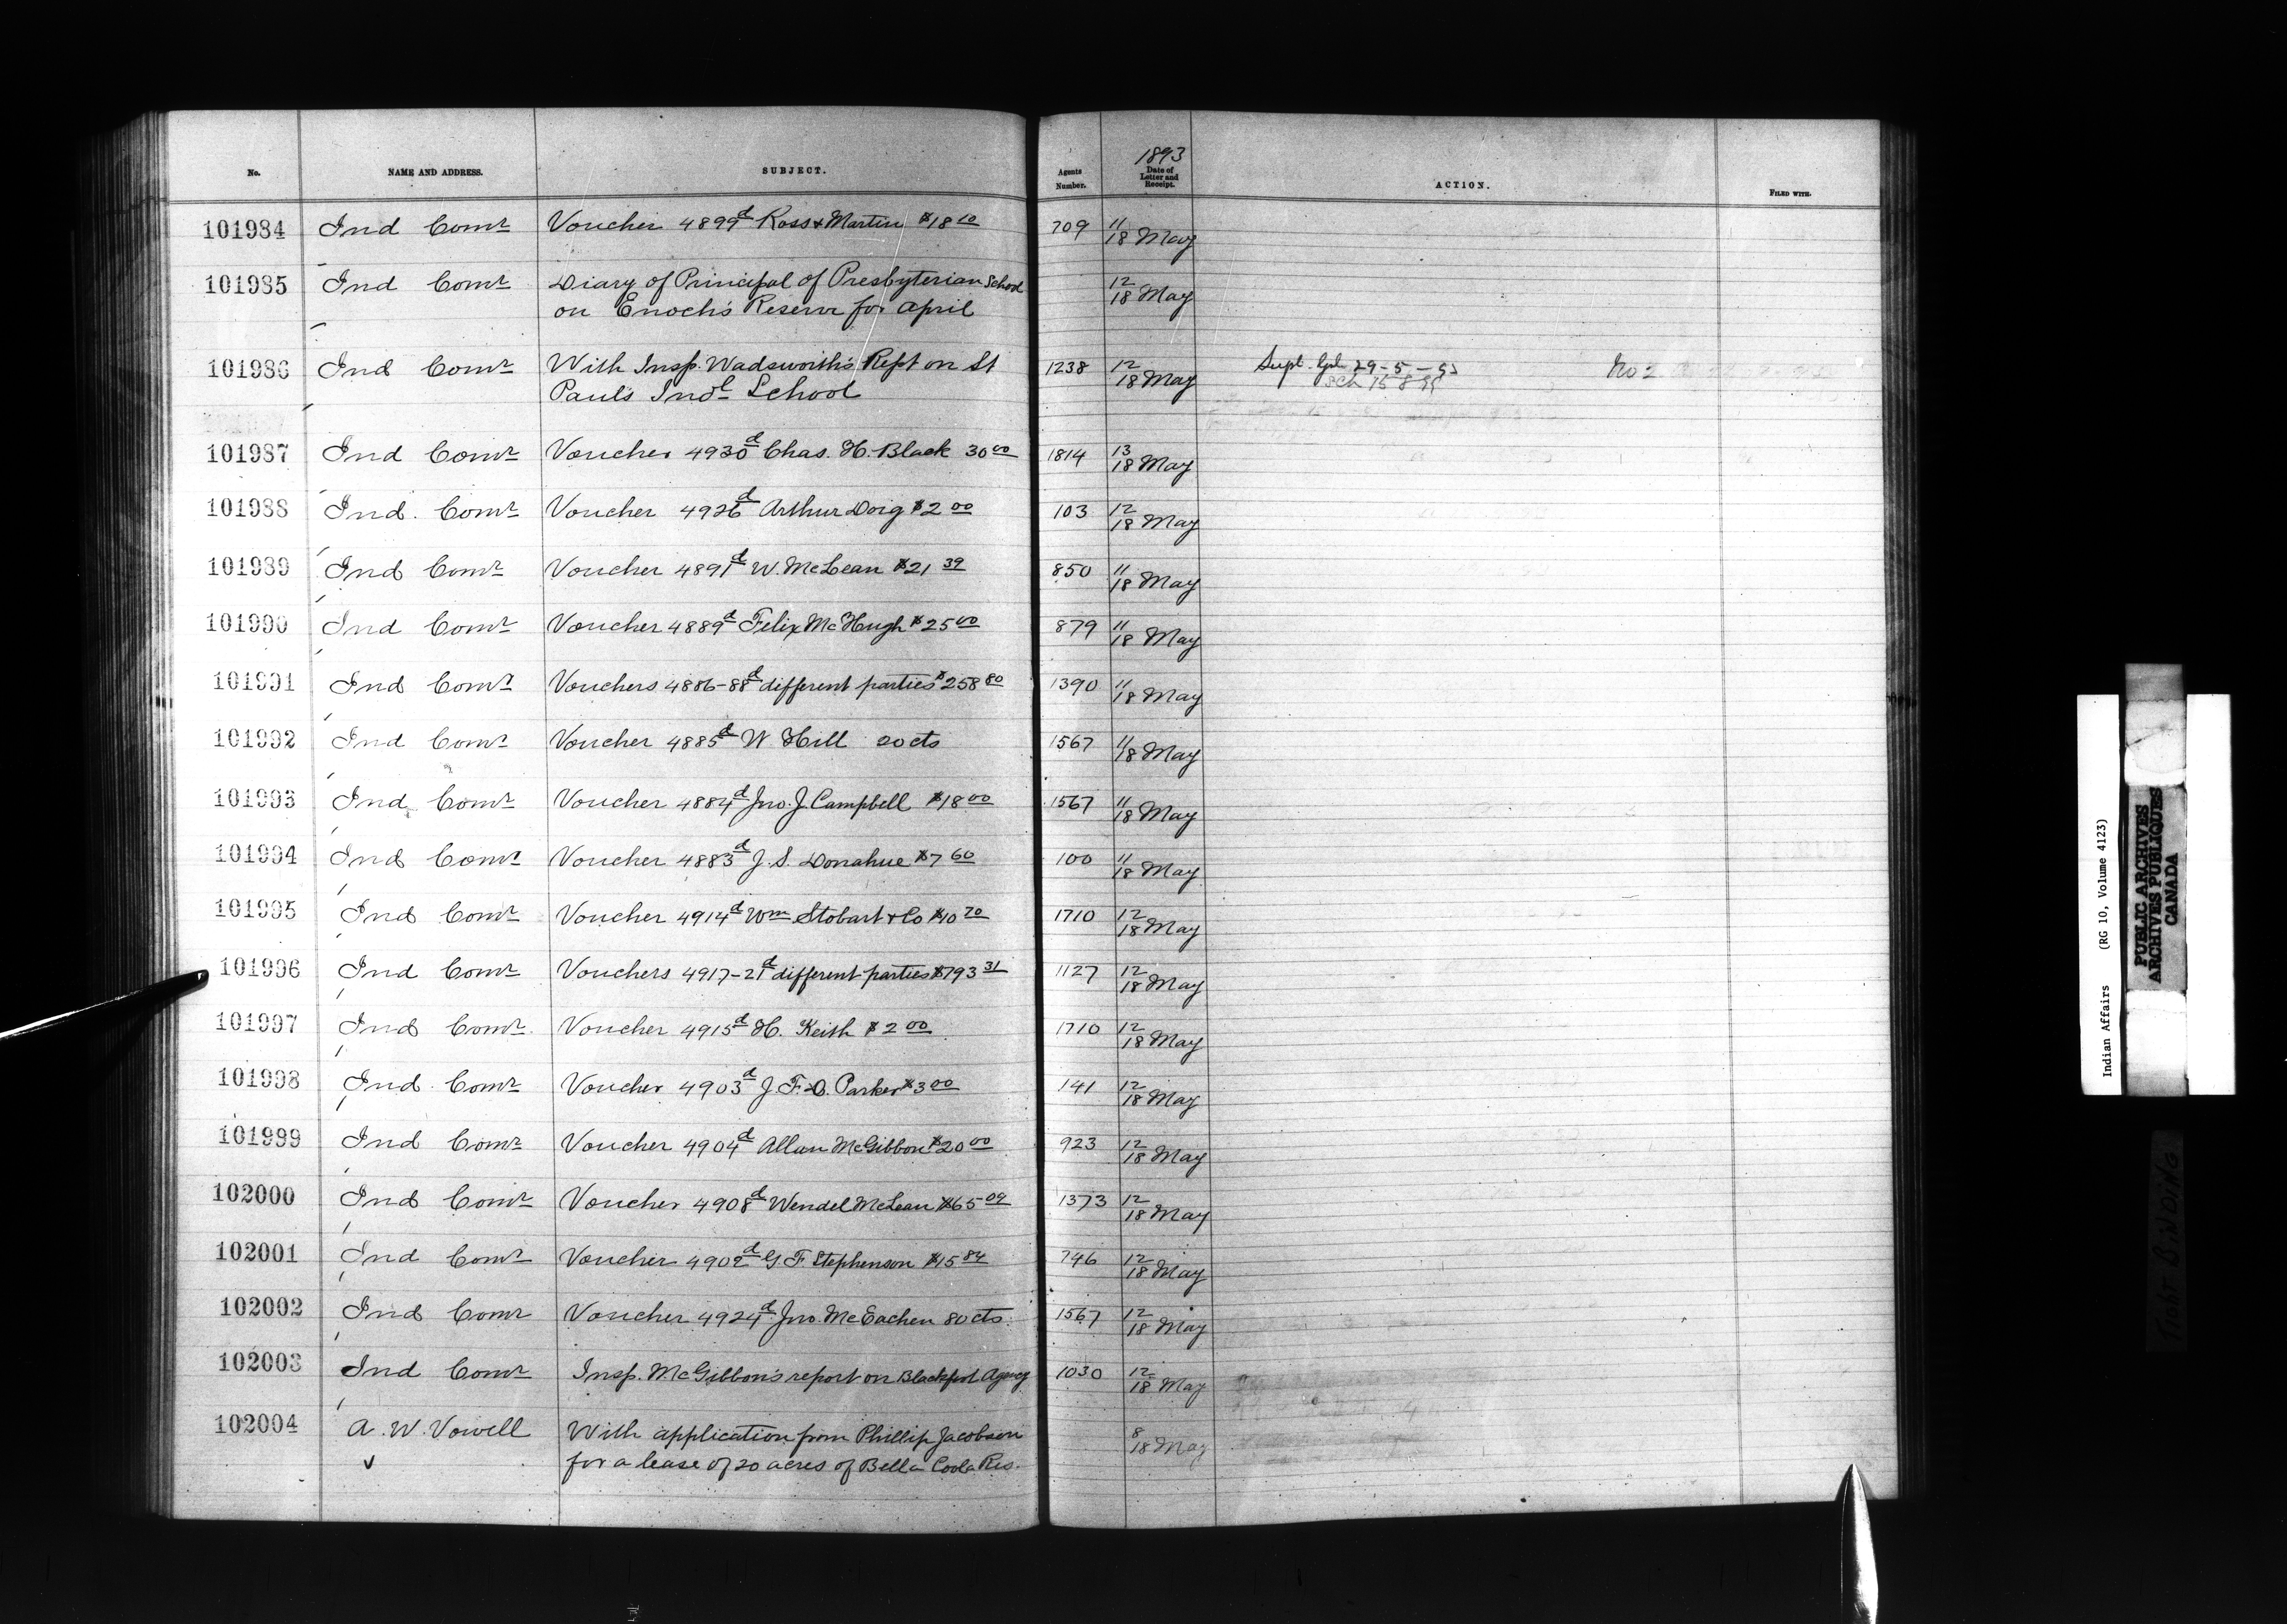 No. NAME AND ADDRESS. SUBJECT. Agents Number. 1893 Date of Letter and Receipt. ACTION. FILED WITH.
101984 Ind Comr Voucher 4899d Ross & Martin $18 10 709 11/18 May
101985 Ind Comr Diary of Principal of Presbyterian School 12/18 May
on Enoch's Reserve for April
101986 Ind Comr With Insp. Wadsworth's Rept on St 1238 12/18 May Supt. Genl 29-5-93 No 2
Pauls Indl School
101987 Ind Comr Voucher 4930d Chas. H. Black 30 00 1814 13/18 May
101988 Ind. Comr Voucher 4926d Arthur Doig $2 00 103 12/18 May
101989 Ind Comr Voucher 4891d W. McLean $21 39 850 11/18 May
101990 Ind Comr Voucher 4889d Felix McHugh $25 00 879 11/18 May
101991 Ind Comr Vouchers 4886-88d different parties $258 80 1390 11/18 May
101992 Ind Comr Voucher 4885d W Hill 20 cts 1567 11/18 May
101993 Ind Comr Voucher 4884d Jno. J. Campbell $18 00 1567 11/18 May
101994 Ind Comr Voucher 4883d J. S. Donahue $7 60 100 11/18 May
101995 Ind Comr Voucher 4914d Wm Stobart & Co $10 70 1710 12/18 May
101996 Ind Comr Vouchers 4917-21d different parties $793 31 1127 12/18 May
101997 Ind Comr Voucher 4915d H. Keith $2 00 1710 12/18 May
101998 Ind Comr Voucher 4903d J. F. D. Parker $3 00 141 12/18 May
101999 Ind Comr Voucher 4904d Allan McGibbon $20 00 923 12/18 May
102000 Ind Comr Voucher 4908d Wendel McLean $65 09 1373 12/18 May
102001 Ind Comr Voucher 4902d G. F Stephenson $15 84 746 12/18 May
102002 Ind Comr Voucher 4924d Jno. McEachen 80 cts 1567 12/18 May
102003 Ind Comr Insp. McGibbon's report on Blackfoot Agency 1030 12/18 May
102004 A. W. Vowell With application from Phillip Jacobsen 8/18 May
for a lease of 20 acres of Bella Coola Res.
Indian Affairs (RG 10, Volume 4123)
PUBLIC ARCHIVES
ARCHIVES PUBLIQUES
CANADA
TIGHT BINDING